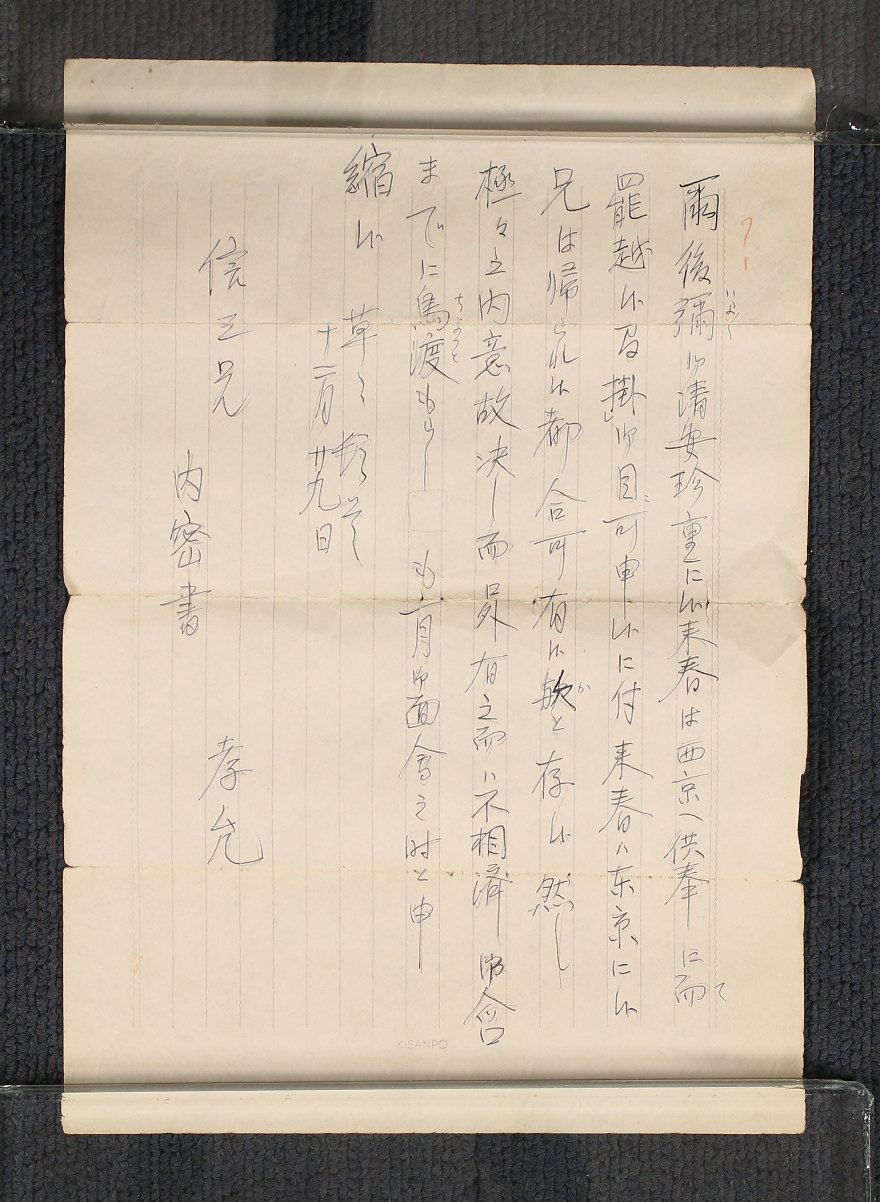 爾後彌御清安珍重に候来春は西京へ供奉に而
いよ〱
て
罷越候間掛御目可申候に付来春ハ東京に候
兄は帰られ候都合可有候歟と存候然し
か
極々之内意故決し而呉有之而ハ不相済御含
までに馬渡もらし□も一月御面會之時と申
ちよつと
縮候
草々頓首
十二月廿九日
信三兄
孝允
内密書
KISANPO